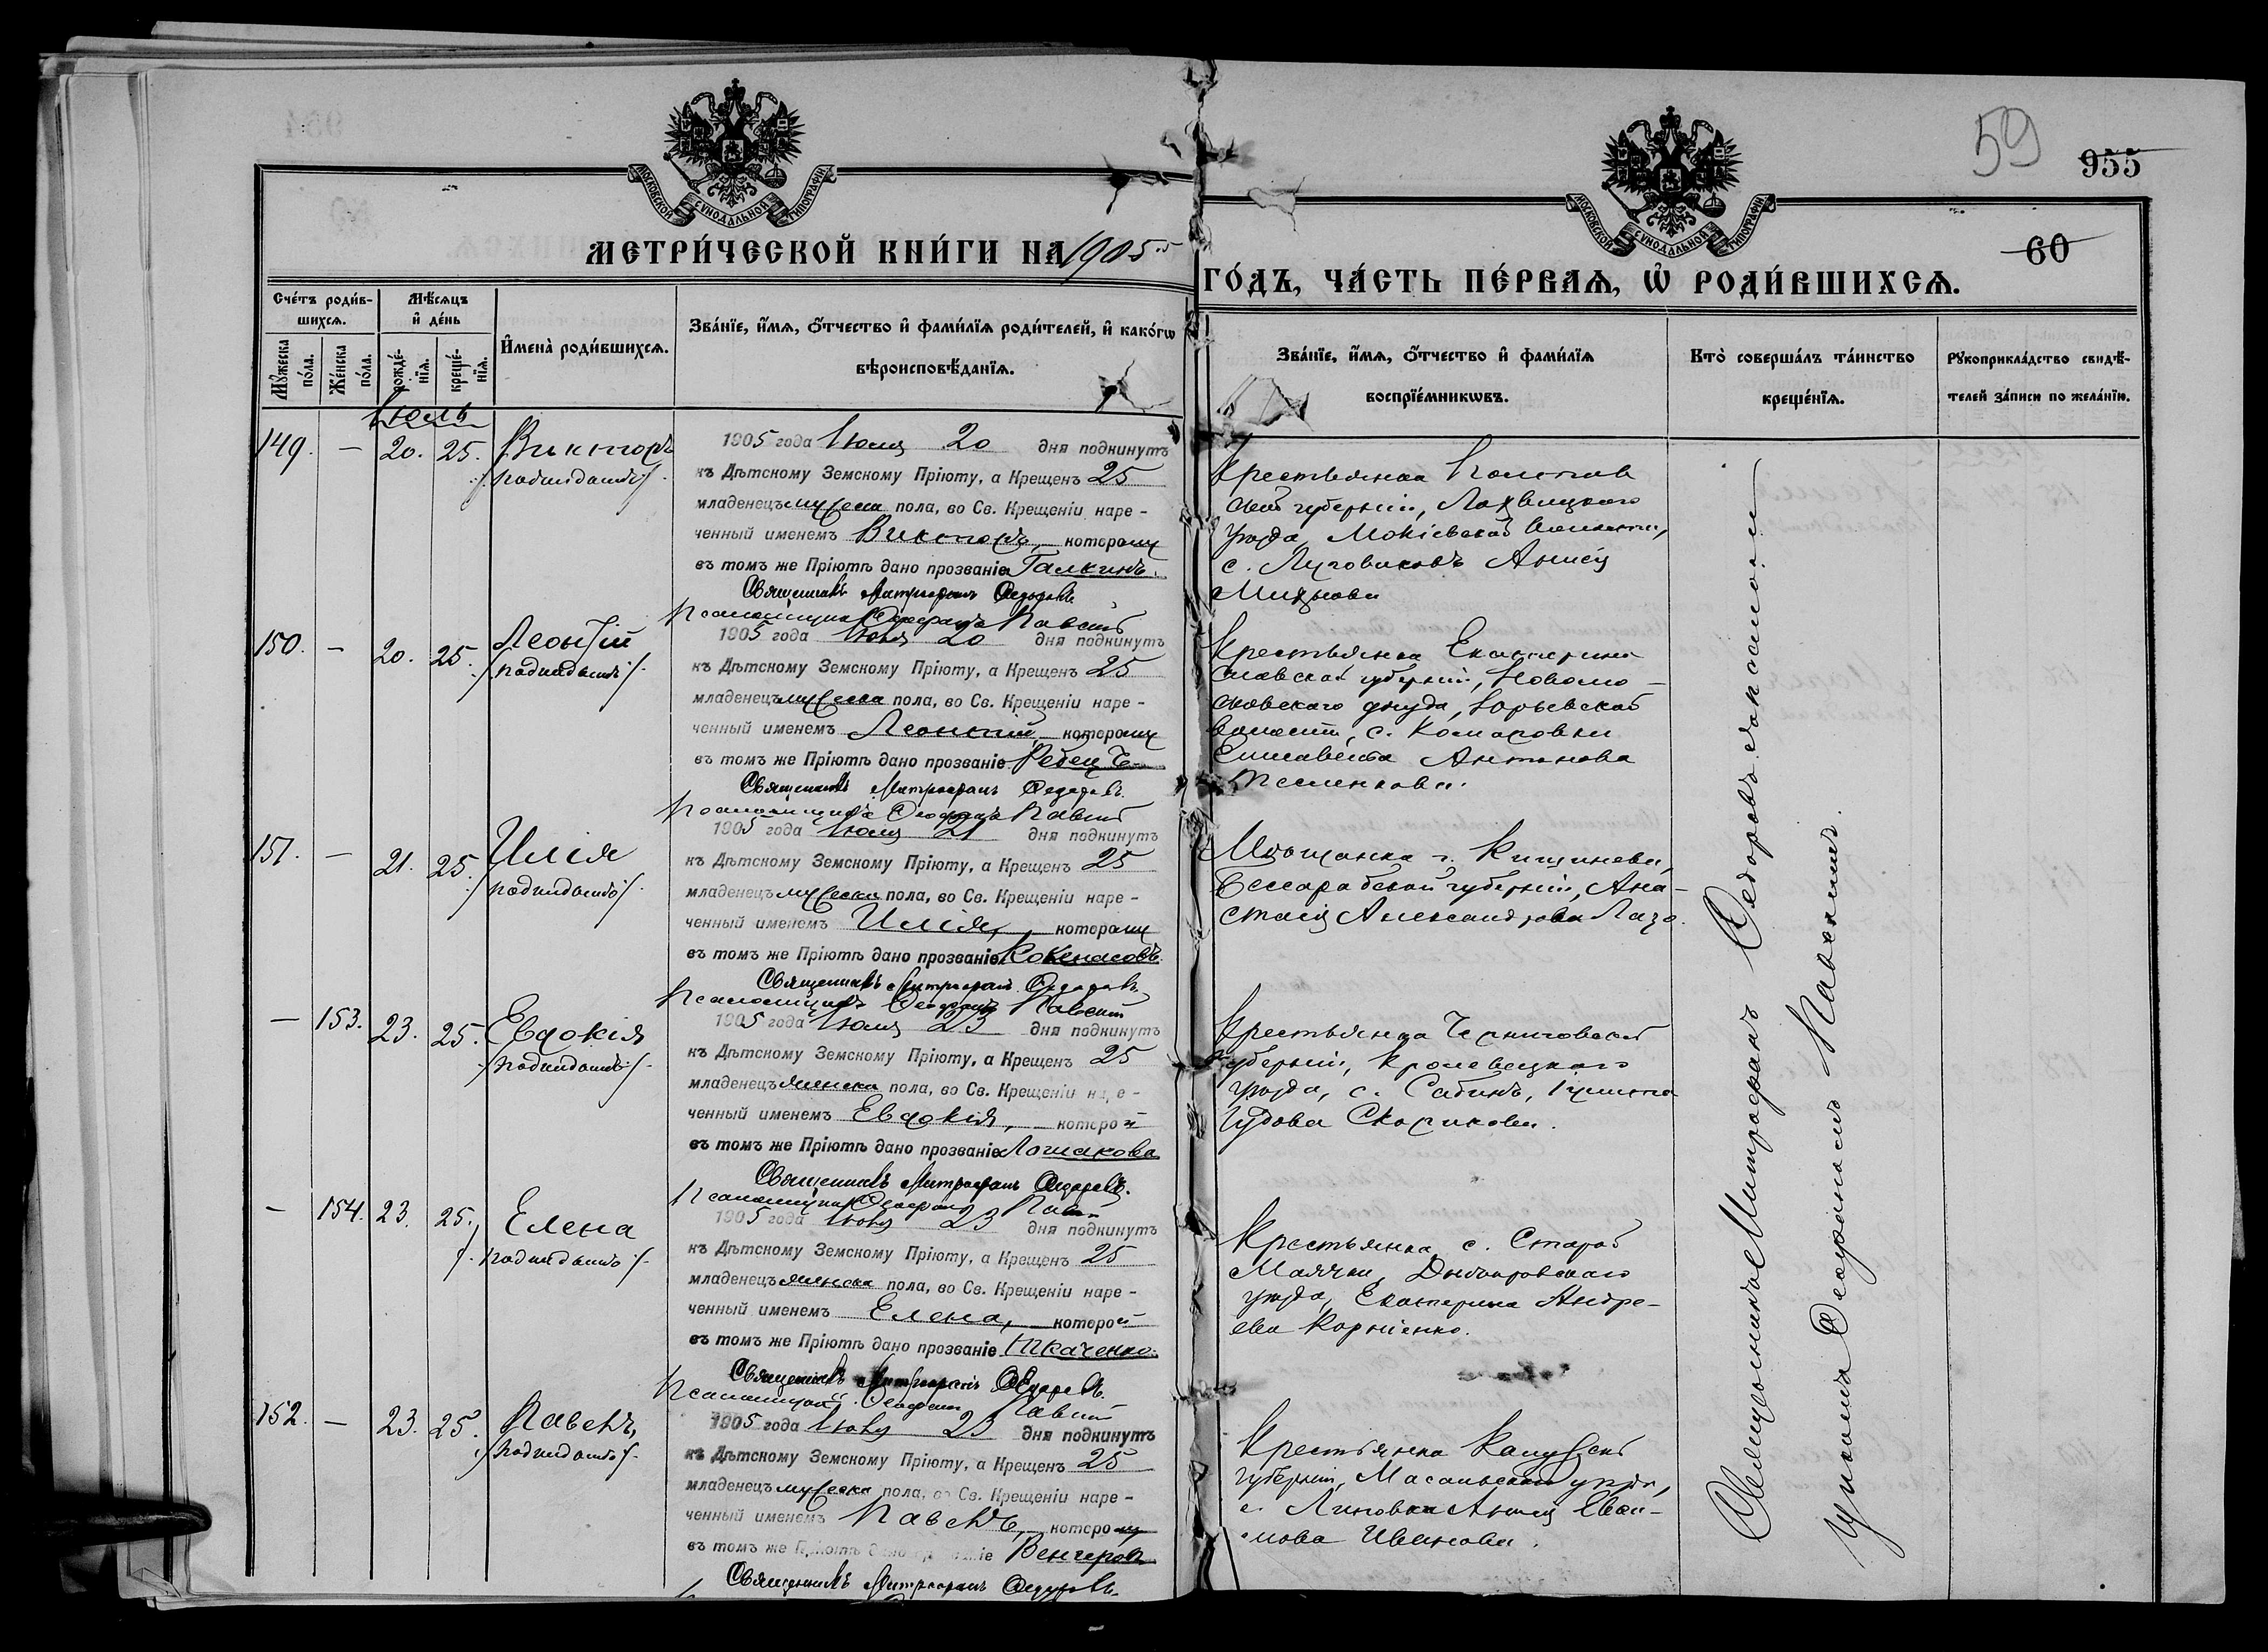 59
955
60
МОСКОВСКОЙ СѴНОДАЛЬНОЙ ТИПОГРАФІИ
МОСКОВСКОЙ СѴНОДАЛЬНОЙ ТИПОГРАФІИ
МЕТРИ́ЧЕСКОЙ КНИ́ГИ НА 1905
ГО́ДЪ, ЧА́СТЬ ПЕ́РВАЯ, Ѡ҆ РОДИ́ВШИХСЯ.
Сче́тъ роди́вшихся.
Мꙋ́жеска по́ла.
Же́нска по́ла.
Мѣ́сяцъ и҆ де́нь
рожде́нїя.
креще́нїя.
И҆мена̀ роди́вшихся.
Зва́нїе, и҆́мя, ѻ҆́тчество и҆ фами́лїя роди́телей, и҆ како́гѡ
вѣроисповѣ́данїя.
Зва́нїе, и҆́мя, ѻ҆́тчество и҆ фами́лїя
воспрїе́мникѡвъ.
Кто̀ соверша́лъ та́инство
креще́нїя.
Рꙋкоприкла́дство свидѣ́-
телей за́писи по жела́нїю.
Іюль
149. — 20. 25. Викторъ
подкидышъ
1905 года Іюля 20 дня подкинутъ
къ Дѣтскому Земскому Пріюту, а Крещенъ 25
младенецъ мужеска пола, во Св. Крещеніи наре-
ченный именемъ Викторъ, которому
въ томъ же Пріютѣ дано прозваніе Галкинъ.
Священникъ Митрофанъ Федоровъ
Псаломщикъ Павскій
Крестьянка Полтав
ской губерніи, Лохвицкаго
уѣзда, Мокіевской волости,
с. Луговиковъ
150. — 20. 25. Леонтій
подкидышъ
1905 года Іюля 20 дня подкинутъ
къ Дѣтскому Земскому Пріюту, а Крещенъ 25
младенецъ мужеска пола, во Св. Крещеніи наре-
ченный именемъ Леонтій, которому
въ томъ же Пріютѣ дано прозваніе
Священникъ Митрофанъ Федоровъ.
Псаломщикъ Павскій
Крестьянка Екатерино
славской губерніи, Новомо-
сковскаго уѣзда, Юрьевской
волости, с. Комаровки
Елисавета Антонова
151. — 21. 25. Илія
подкидышъ
1905 года Іюля 21 дня подкинутъ
къ Дѣтскому Земскому Пріюту, а Крещенъ 25
младенецъ мужеска пола, во Св. Крещеніи наре-
ченный именемъ Илія, которому
въ томъ же Пріютѣ дано прозваніе
Священникъ Митрофанъ Федоровъ
Псаломщикъ Павскій
Мѣщанка г. Кишинева,
Бессарабской губерніи, Ана-
стасія Александрова Лазо.
— 153. 23. 25. Евдокія
подкидышъ
1905 года Іюля 23 дня подкинутъ
къ Дѣтскому Земскому Пріюту, а Крещенъ 25
младенецъ женска пола, во Св. Крещеніи наре-
ченный именемъ Евдокія, которой
въ томъ же Пріютѣ дано прозваніе Лошакова
Священникъ Митрофанъ Федоровъ.
Псаломщикъ Павскій
Крестьянка Черниговской
губерніи, Кролевецкаго
уѣзда, с.
Скорикова.
— 154. 23. 25. Елена
подкидышъ
1905 года Іюля 23 дня подкинутъ
къ Дѣтскому Земскому Пріюту, а Крещенъ 25
младенецъ женска пола, во Св. Крещеніи наре-
ченный именемъ Елена, которой
въ томъ же Пріютѣ дано прозваніе Ткаченко.
Священникъ Митрофанъ Федоровъ.
Псаломщикъ Павскій
Крестьянка с. Старой
Маячки, Днѣпровскаго
уѣзда, Екатерина Андре-
ева Корніенко.
152. — 23. 25. Павелъ,
подкидышъ
1905 года Іюля 23 дня подкинутъ
къ Дѣтскому Земскому Пріюту, а Крещенъ 25
младенецъ мужеска пола, во Св. Крещеніи наре-
ченный именемъ Павелъ, которому
въ томъ же Пріютѣ дано прозваніе Венгеровъ
Священникъ Митрофанъ Федоровъ.
Крестьянка Калужской
губерніи, Масальскаго уѣзда,
Иванова.
Священникъ Митрофанъ Федоровъ съ псаломщи
Павскимъ.